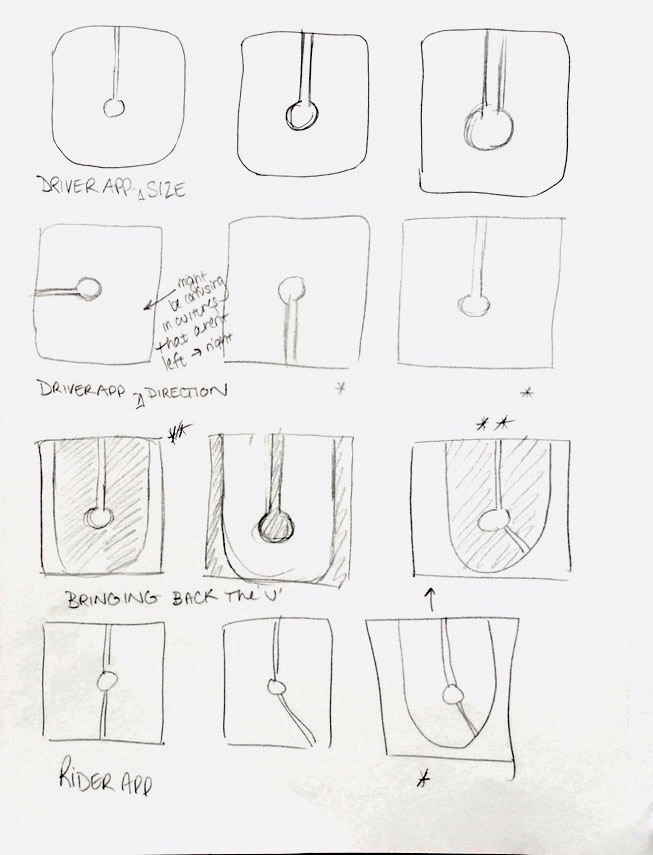 DRIVER APP △ SIZE
might
be confusing
in cultures
that aren't
left → right
DRIVER APP △ DIRECTION
*
*
**
**
BRINGING BACK The 'U'
RIDER APP
*